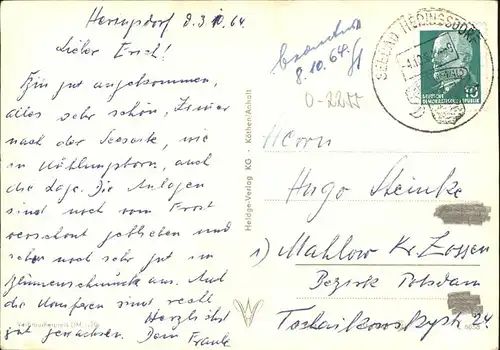 Heringsdorf 8.10.64
Lieber Erich!
Bin gut angekommen,
alles sehr schön, Zimmer
nach der Seeseite, wie
in Kühlungsborn, auch
die Lage. Die Anlagen
sind noch vom Frost
verschont geblieben und
sehen noch sehr gut im
Blumenschmuck aus. Auch
die Koniferen sind recht
gut gewachsen. Herzlichst
Dein Frank
beantw
8.10.64.
0-2277
SEEBAD HERINGSDORF
DEUTSCHE
DEMOKRATISCHE REPUBLIK
10
Heldge-Verlag KG - Köthen/Anhalt
Herrn
Hugo Steinke
1) Mahlow Kr. Zossen
Bezirk Potsdam
Tschaikowskystr 24.